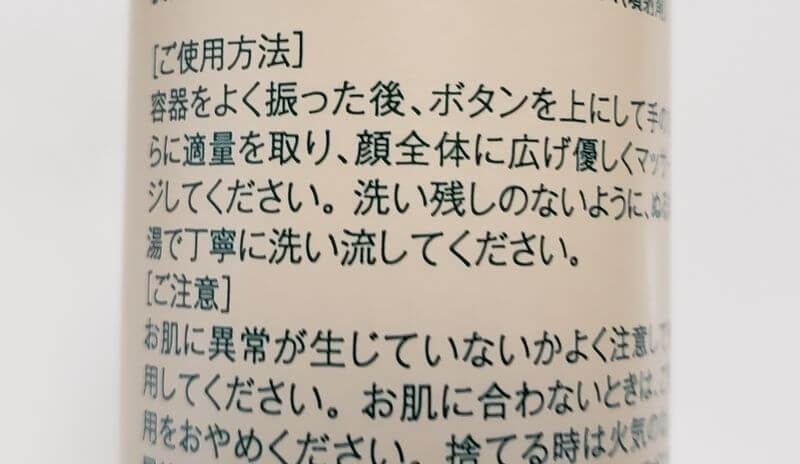 (噴射剤)
[ご使用方法]
容器をよく振った後、ボタンを上にして手の
らに適量を取り、顔全体に広げ優しくマッサー
ジしてください。洗い残しのないように、ぬる
湯で丁寧に洗い流してください。
[ご注意]
お肌に異常が生じていないかよく注意して
用してください。お肌に合わないときは、ご
用をおやめください。捨てる時は火気の